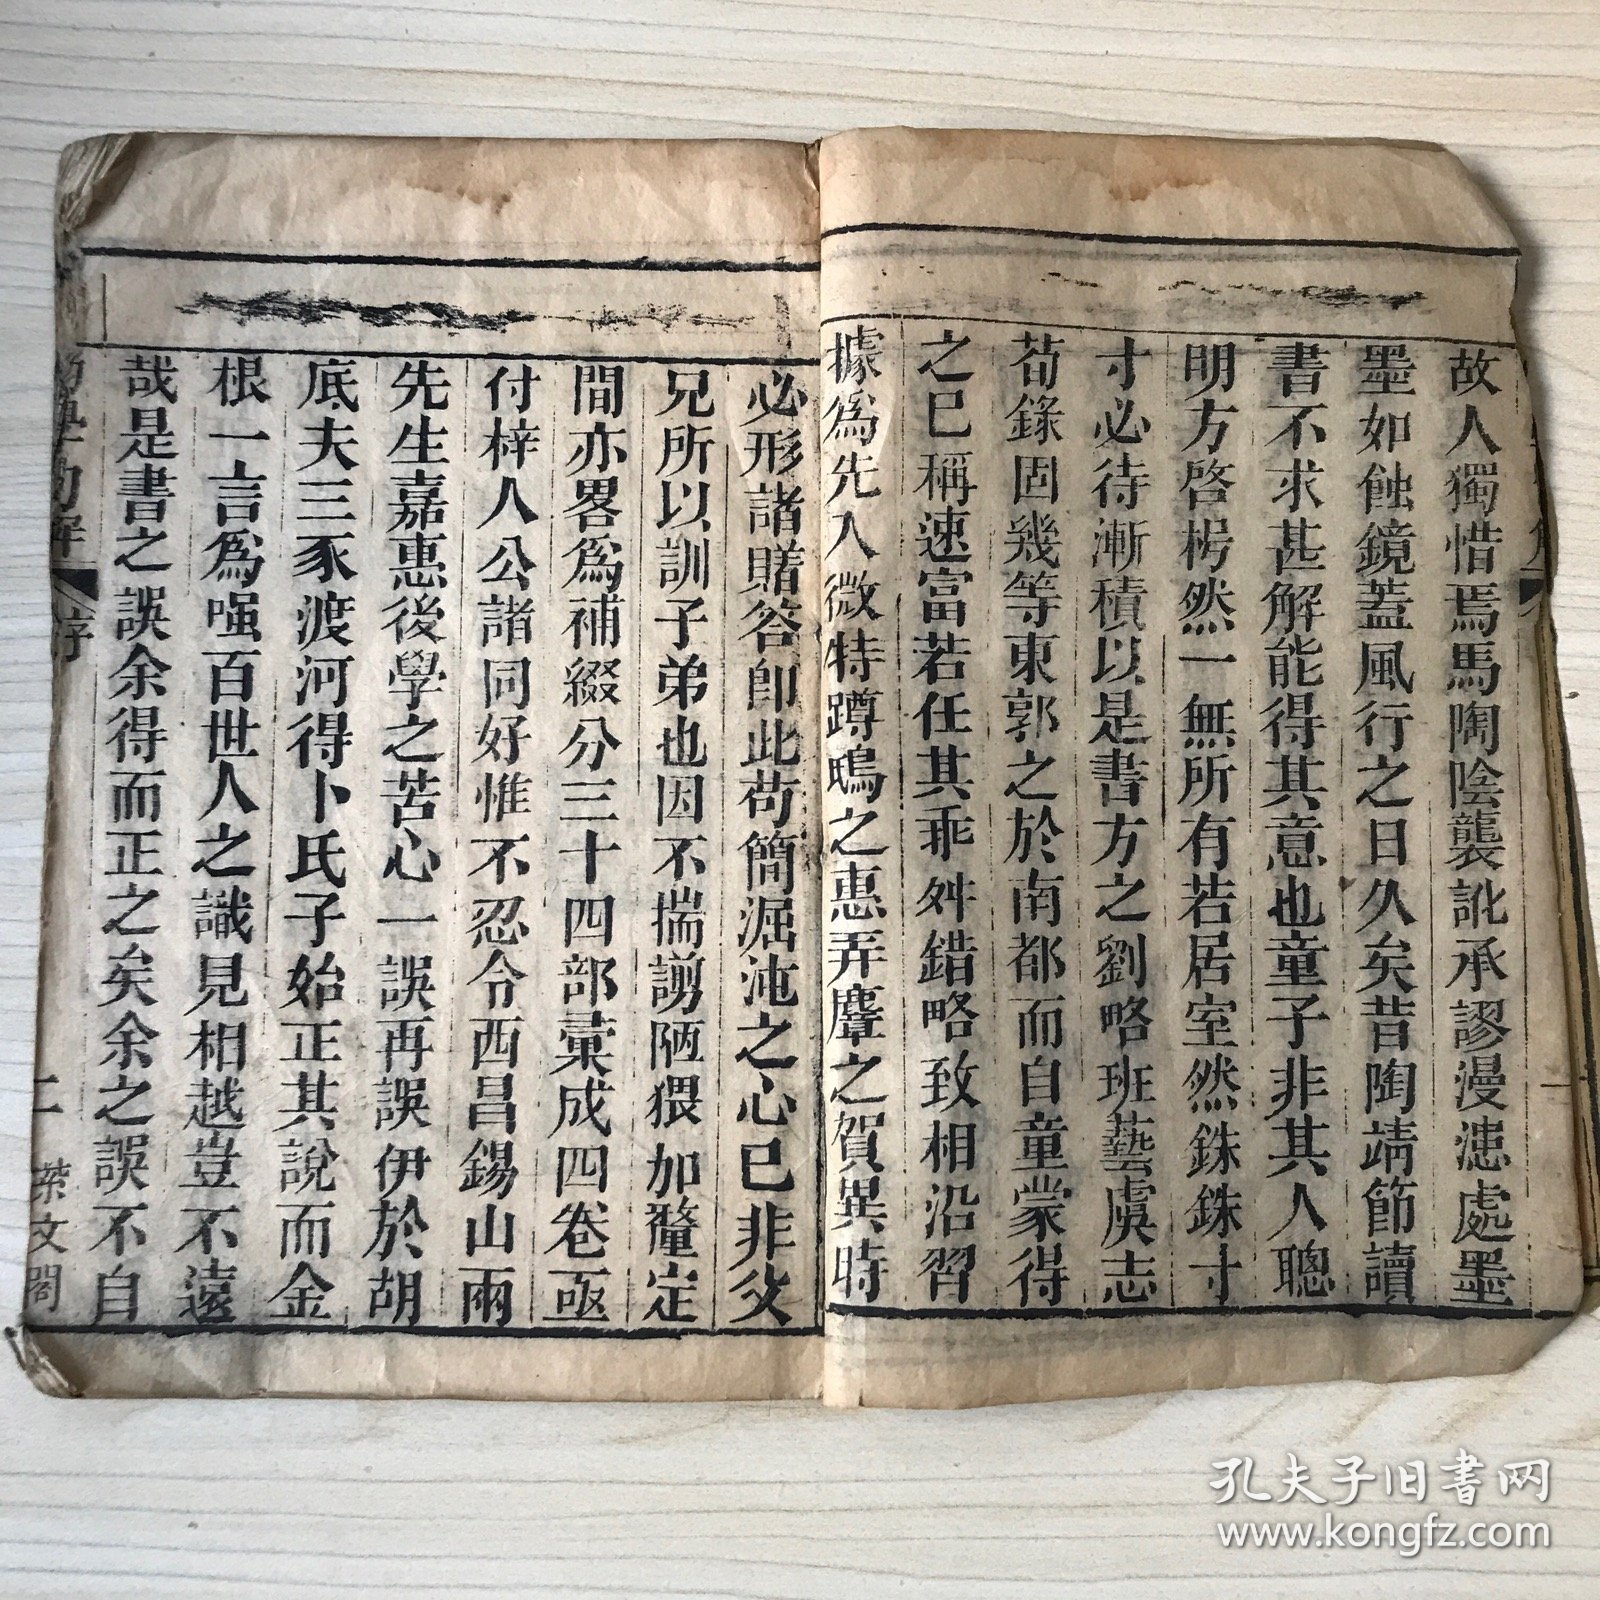 故人獨惜焉馬陶陰襲訛承謬漫漶處墨
墨如蝕鏡蓋風行之日久矣昔陶靖節讀
書不求甚解能得其意也童子非其人聰
明方啓枵然一無所有若居室然銖銖寸
寸必待漸積以是書方之劉略班藝虞志
荀錄固幾等東郭之於南都而自童蒙得
之已稱速富若任其乖舛錯略致相沿習
據爲先入微特蹲鴟之惠弄麞之賀異時
必形諸賭答卽此苟簡混沌之心已非父
兄所以訓子弟也因不揣謭陋猥加釐定
間亦畧爲補綴分三十四部彙成四卷亟
付梓人公諸同好惟不忍令西昌錫山兩
先生嘉惠後學之苦心一誤再誤伊於胡
底夫三豕渡河得卜氏子始正其說而金
根一言爲嗤百世人之識見相越豈不遠
哉是書之誤余得而正之矣余之誤不自
序
二
文閣
孔夫子旧书网
www.kongfz.com